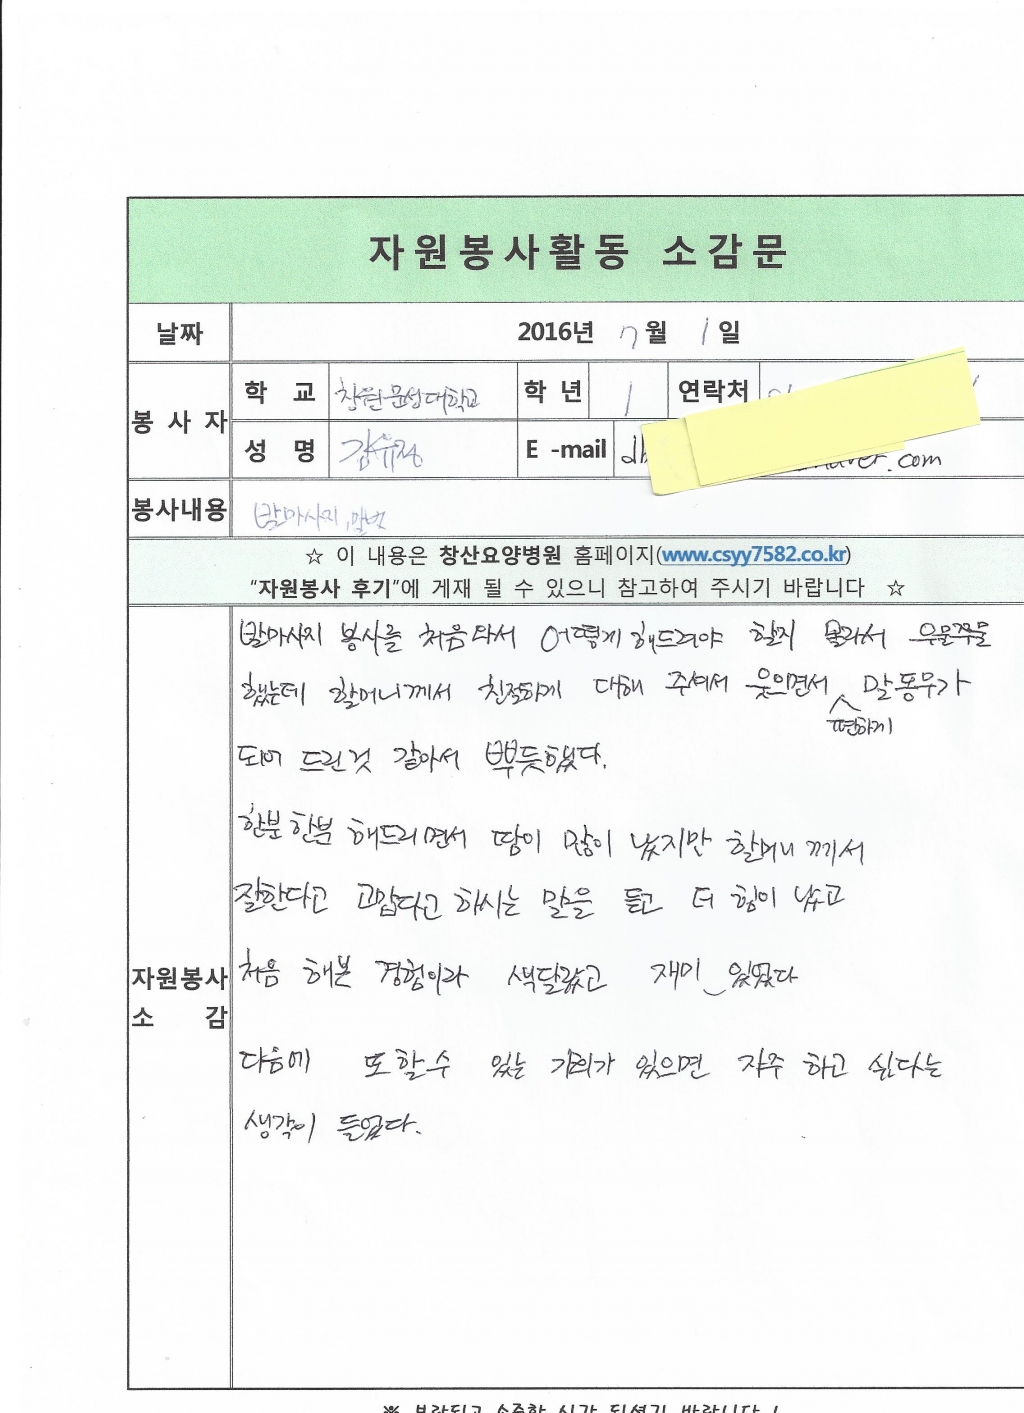 자원봉사활동 소감문
날짜 2016년 7월 1일
봉사자 학 교 창원문성대학교 학년 1 연락처
성 명 김유정 E -mail .com
봉사내용 발마사지, 말벗
☆ 이 내용은 창산요양병원 홈페이지(www.csyy7582.co.kr)
"자원봉사 후기"에 게재 될 수 있으니 참고하여 주시기 바랍니다 ☆
자원봉사 소 감
발마사지 봉사를 처음 와서 어떻게 해드려야 할지 몰라서 우물쭈물
했는데 할머니께서 친절하게 대해 주셔서 웃으면서 편하게 말동무가
되어 드린것 같아서 뿌듯했다.
한분 한분 해드리면서 땀이 많이 났지만 할머니 께서
잘한다고 고맙다고 하시는 말을 듣고 더 힘이 났고
처음 해본 경험이라 색달랐고 재미 있었다
다음에 또 할수 있는 기회가 있으면 자주 하고 싶다는
생각이 들었다.